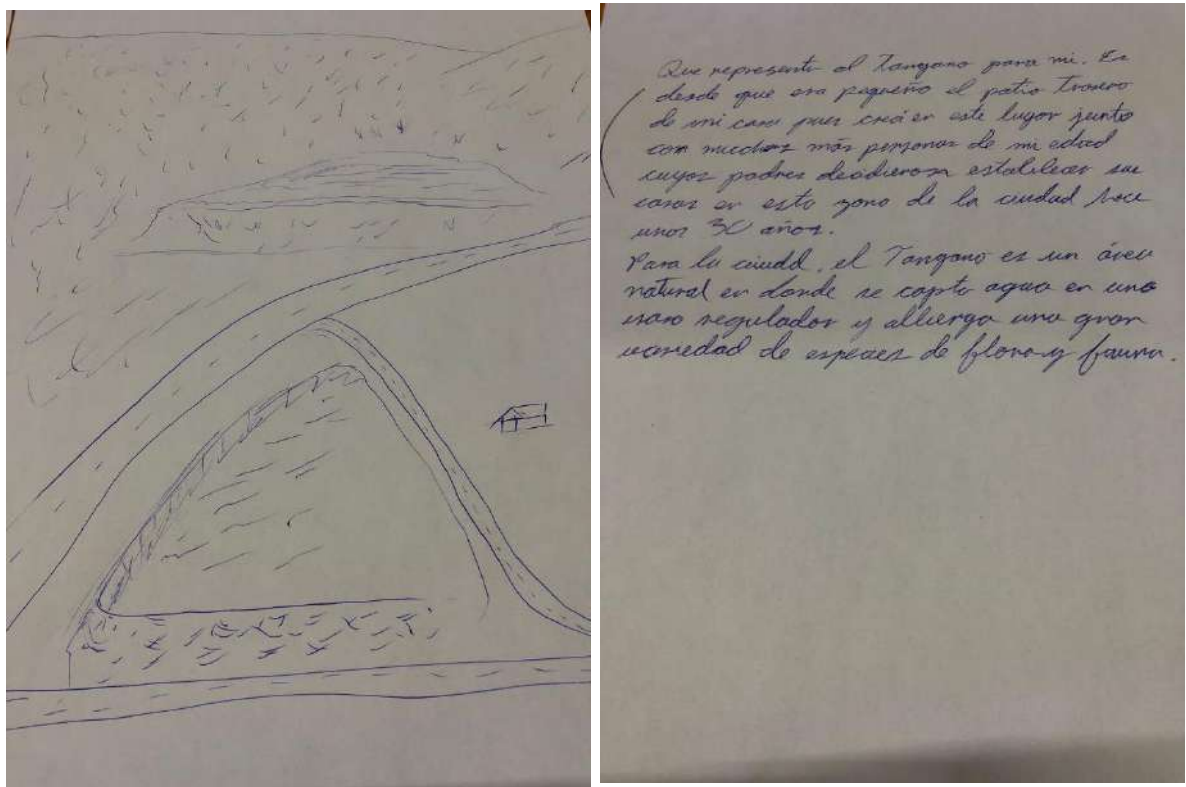 Que representa el Tangano para mi. Es
desde que era pequeño el patio trasero
de mi casa pues crecí en este lugar junto
con muchas más personas de mi edad
cuyos padres decidieron establecer sus
casas en esta zona de la ciudad hace
unos 30 años.
Para la ciudd, el Tangano es un área
natural en donde se capta agua en uno
vaso regulador y alberga una gran
variedad de especies de flora y fauna.